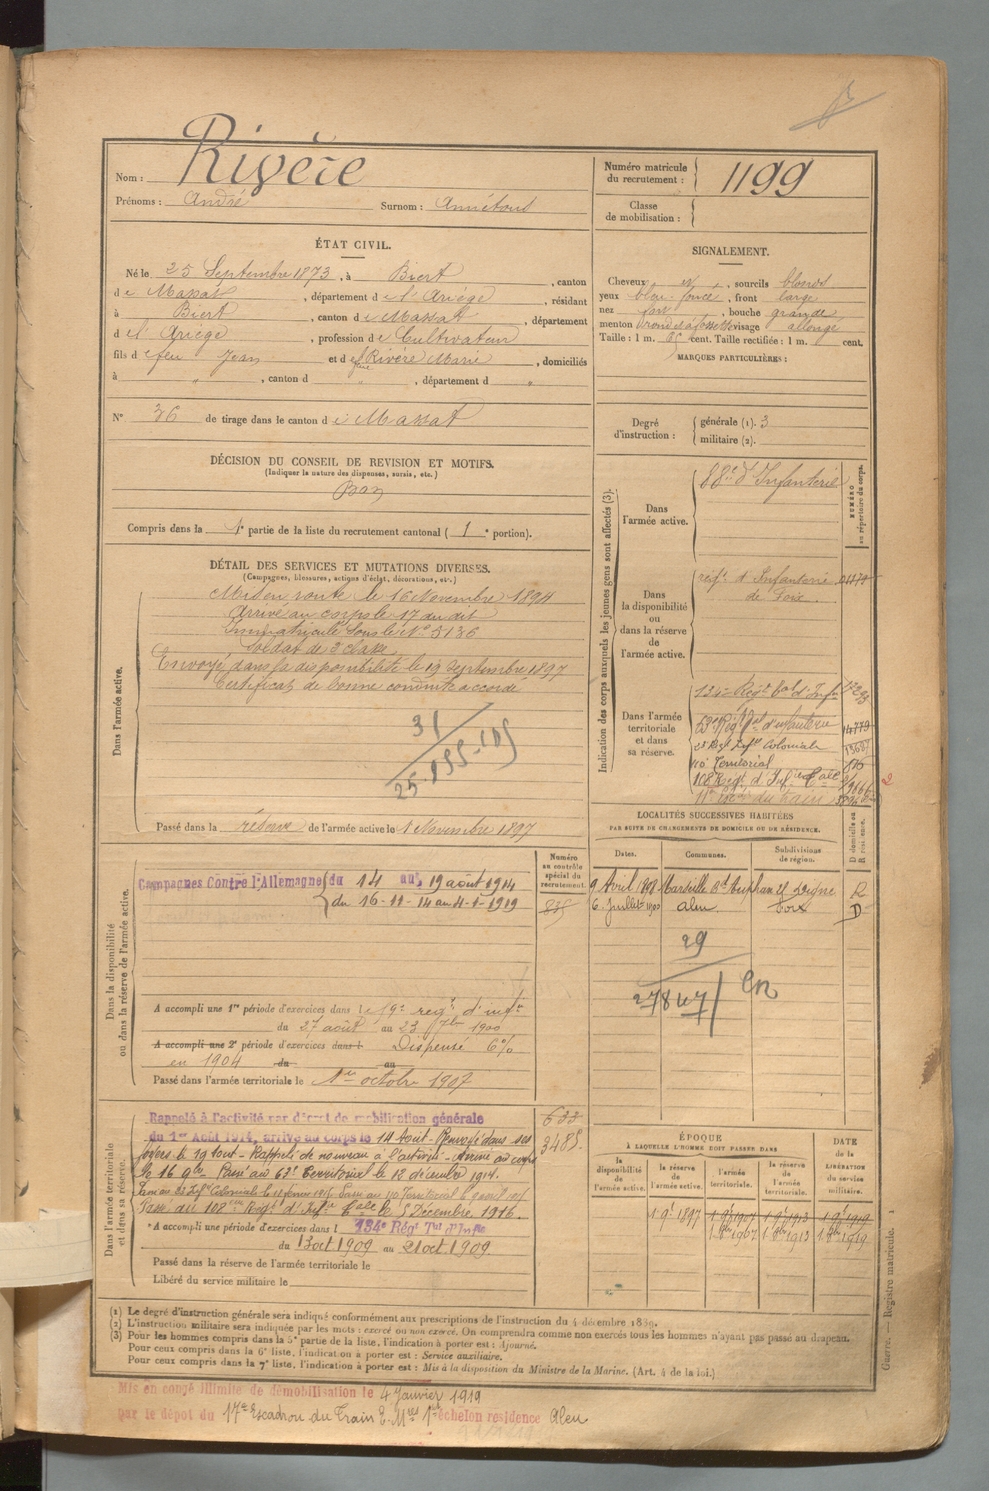 Nom : Rivère
Prénoms : André Surnom :
Numéro matricule du recrutement : 1199
Classe de mobilisation :
ÉTAT CIVIL.
Né le 25 Septembre 1873, à Biert, canton
de Massat, département de l'Ariège, résidant
à Biert, canton de Massat, département
d el' Ariège, profession de Cultivateur
fils de feu Jean et de Rivère Marie, domiciliés
à " , canton d " , département d "
N° 36 de tirage dans le canton de Massat
DÉCISION DU CONSEIL DE REVISION ET MOTIFS.
(Indiquer la nature des dispenses, sursis, etc.)
Bon
Compris dans la 1e partie de la liste du recrutement cantonal ( 1 e portion).
SIGNALEMENT.
Cheveux et, sourcils blonds
yeux bleu foncé, front large
nez fort, bouche grande
menton rond et à fossette visage allongé
Taille : 1 m. 65 cent. Taille rectifiée : 1 m. cent.
MARQUES PARTICULIÈRES :
Degré d'instruction : générale (1). 3
militaire (2).
DÉTAIL DES SERVICES ET MUTATIONS DIVERSES.
(Campagnes, blessures, actions d'éclat, décorations, etc.)
Dans l'armée active.
Mis en route le 16 Novembre 1894
Arrivé au corps le 17 du dit
Immatriculé sous le N° 5136
Soldat de 2e classe
Envoyé dans la disponibilité le 19 Septembre 1897
Certificat de bonne conduite accordé
31
25.155-
Passé dans la réserve de l'armée active le 1 Novembre 1897
Indication des corps auxquels les jeunes gens sont affectés (3).
NUMÉRO au répertoire du corps.
Dans l'armée active. 88e d'Infanterie
Dans la disponibilité ou dans la réserve de l'armée active.
régt d'Infanterie
de Foix.
Dans l'armée territoriale et dans sa réserve.
134e Régt tal d'Infie
63e Régt tal d'infanterie 14779
Colonial
110e Territorial 816
108e Régt d'Infie Cale
17e Escon du train
LOCALITÉS SUCCESSIVES HABITÉES
PAR SUITE DE CHANGEMENTS DE DOMICILE OU DE RÉSIDENCE.
Dates. Communes. Subdivisions de région. D domicile ou R résidence.
9 Avril 1898 Marseille Digne R
6 Juillet 1900 Aleu Foix D
29
27847
Numéro au contrôle spécial du recrutement.
835
Dans la disponibilité ou dans la réserve de l'armée active.
Campagnes Contre l'Allemagne du 14 au 19 août 1914
du 16-11-14 au 4-1-1919
A accompli une 1re période d'exercices dans le 59e régt d'infie
du 27 août au 23 7bre 1900
A accompli une 2e période d'exercices dans l Dispensé 6%
en 1904 du au
Passé dans l'armée territoriale le 1er octobre 1907
Dans l'armée territoriale et dans sa réserve.
633
3485
Rappelé à l'activité par décret de mobilisation générale
du 1er Août 1914, arrivé au corps le 14 Août - Renvoyé dans ses
foyers le 19 Aout - Rappelé de nouveau à l'activité - Arrivé au corps
le 16 9bre - Passé au 63e Territorial le 12 décembre 1914.
Passé au 110 Territorial le 9 avril
Passé au 108ème Régt d'Infie Cale le 5 Décembre 1916.
A accompli une période d'exercices dans l 134e Régt Tal d'Infie
du 13 oct 1909 au 21 oct 1909
Passé dans la réserve de l'armée territoriale le
Libéré du service militaire le
ÉPOQUE
À LAQUELLE L'HOMME DOIT PASSER DANS
la disponibilité de l'armée active. la réserve de l'armée active. l'armée territoriale. la réserve de l'armée territoriale. DATE de la LIBÉRATION du service militaire.
1 9e 1897 1 9e 1907 1 9e 1913 1 9e 1919
1 8bre 1907 1 8bre 1913 1 8bre 1919
Guerre. — Registre matricule. 1
(1) Le degré d'instruction générale sera indiqué conformément aux prescriptions de l'instruction du 4 décembre 1889.
(2) L'instruction militaire sera indiquée par les mots : exercé ou non exercé. On comprendra comme non exercés tous les hommes n'ayant pas passé au drapeau.
(3) Pour les hommes compris dans la 5e partie de la liste, l'indication à porter est : Ajourné.
Pour ceux compris dans la 6e liste, l'indication à porter est : Service auxiliaire.
Pour ceux compris dans la 7e liste, l'indication à porter est : Mis à la disposition du Ministre de la Marine. (Art. 4 de la loi.)
Mis en congé illimité de démobilisation le 4 Janvier 1919
par le dépot du 17e Escadron du Train 1er échelon résidence Aleu